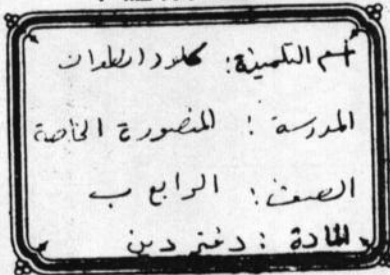 اسم التلميذة: كلود انطوان
المدرسة: المنصورة الخاصة
الصف: الرابع ب
المادة: دفتر دين